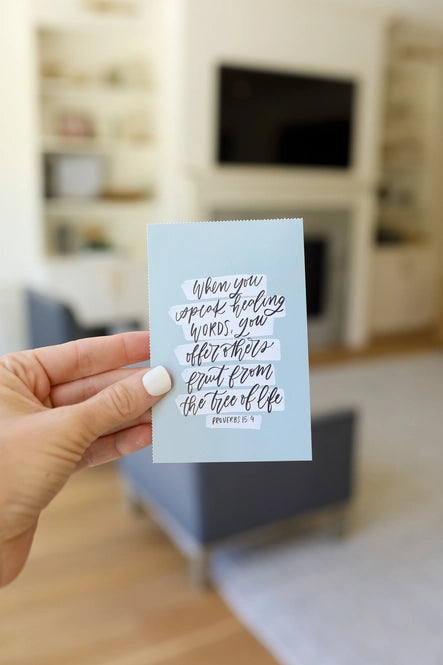 When you
speak healing
WORDS, you
offer others
fruit from
the tree of life
PROVERBS 15:4